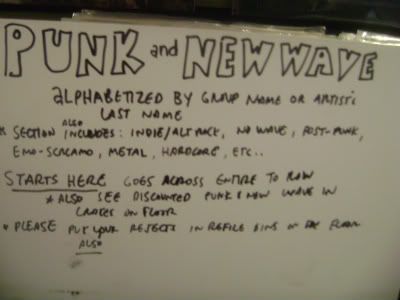 PUNK and NEW WAVE
ALPHABETIZED BY GROUP NAME OR ARTIST'S
LAST NAME
* SECTION ALSO INCLUDES: INDIE/ALT ROCK, NO WAVE, POST-PUNK,
EMO-SCREAMO, METAL, HARDCORE, ETC..
STARTS HERE GOES ACROSS ENTIRE TO ROW
* ALSO SEE DISCOUNTED PUNK & NEW WAVE IN
CRATES ON FLOOR
* PLEASE PUT YOUR REJECTS IN REFILE BINS ON THE FLOOR
ALSO